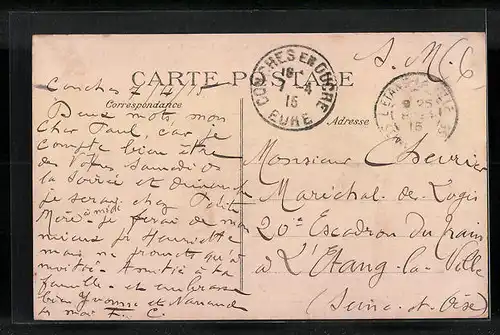 S. M. C
CARTE POSTALE
Correspondance
Adresse
CONCHES EN OUCHE
16
7 - 4
15
EURE
L'ETANG
9 25
15
Conches 7/4/15
Deux mots, mon
Cher Paul, car je
compte bien être
des Vôtres Samedi
la soirée et
je serai chez
midi
je ferai de mon
mieux pr Henriette
mais ne promets qu'à
moitié. Amitié à ta
famille et embrasse
bien Yvonne et
Monsieur Chevrier
Maréchal des Logis
20e Escadron du train
à L'Etang-la-Ville
(Seine et Oise)